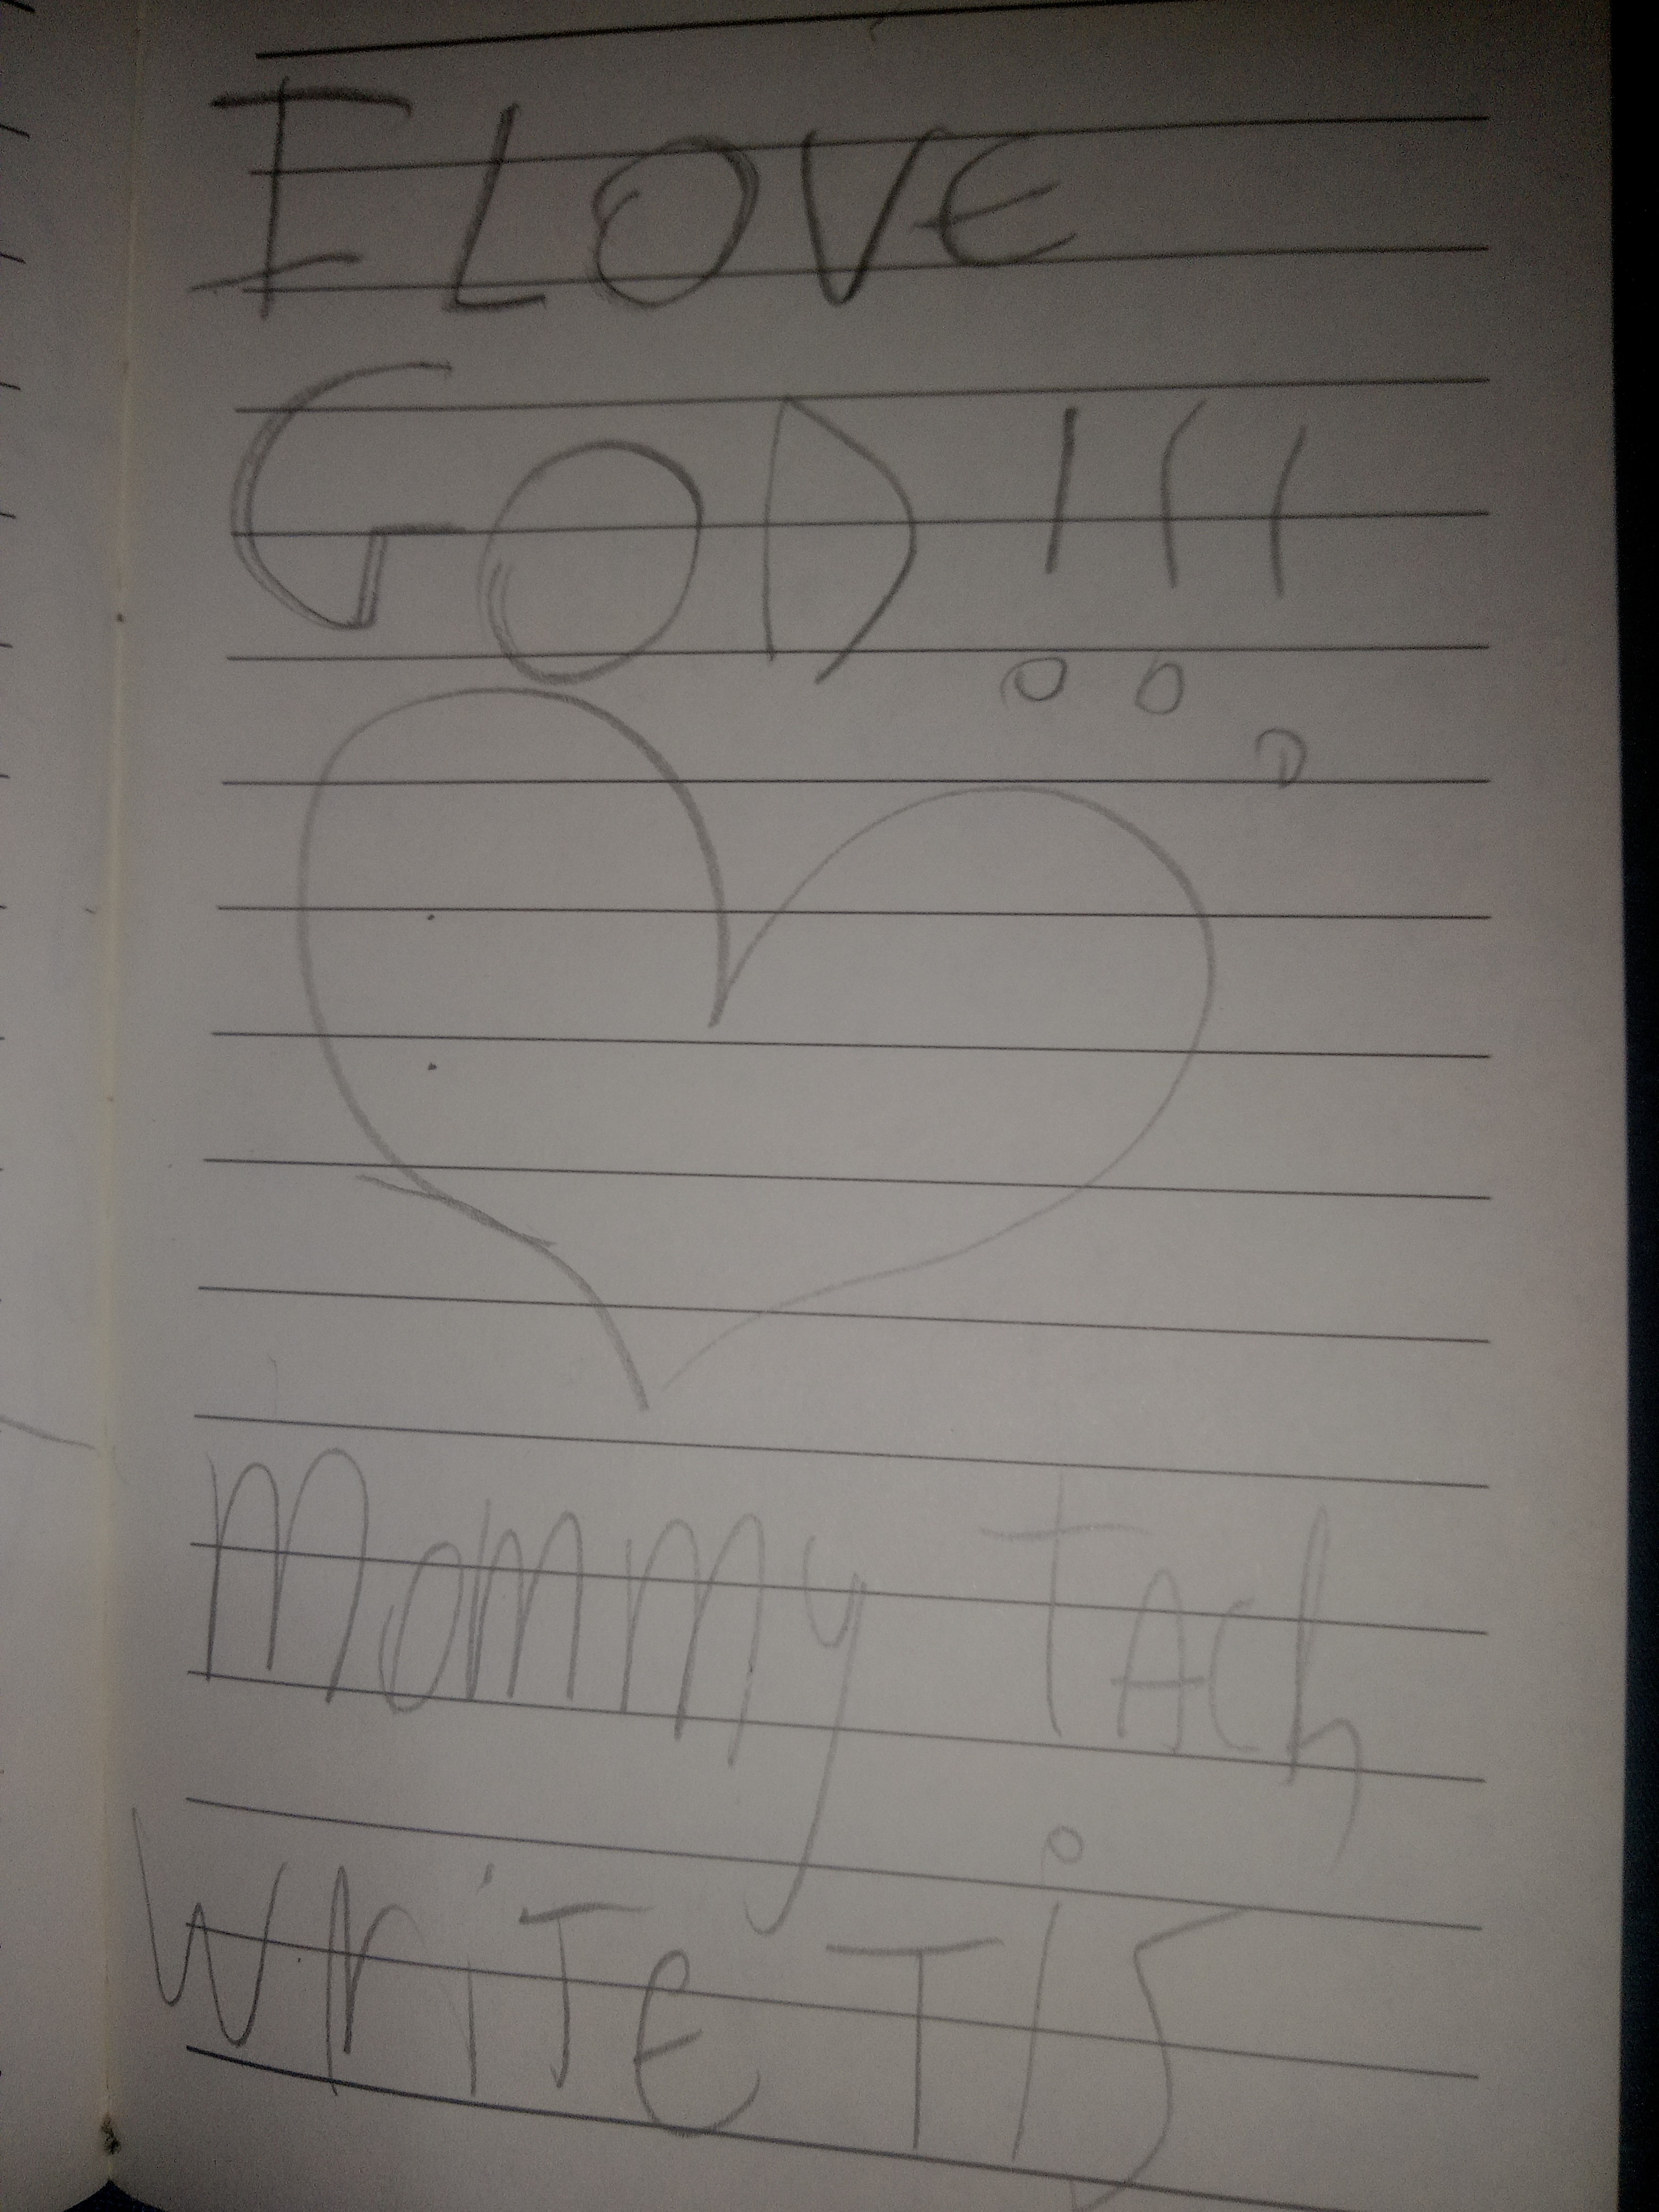 I LOVE
GOD!!!
Mommy TAch
WriTE TiS